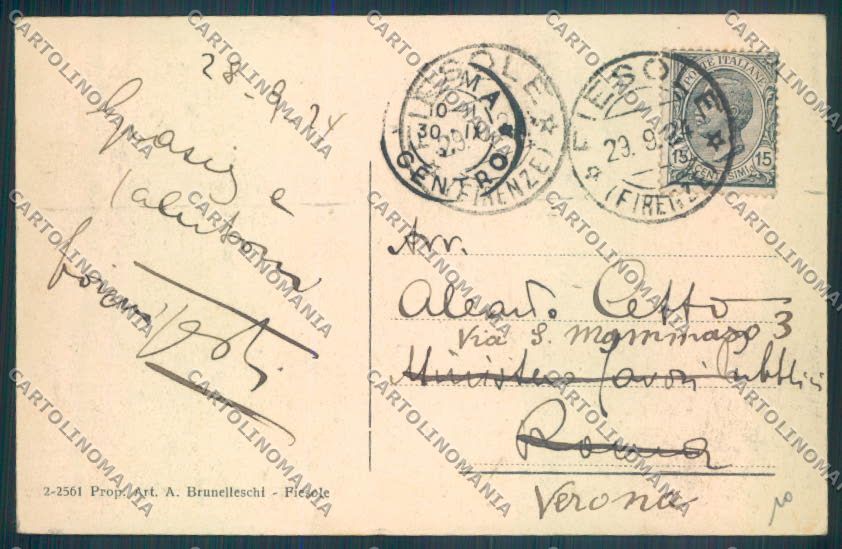 28-9-24
Grazie e
saluti
FIESOLE
(FIRENZE)
ROMA
CENTRO
10
30 IX
FIESOLE
29.9.24
(FIRENZE)
POSTE ITALIANE
15 15
CENTESIMI
Avv.
Via S. Mammaso 3
Ministero Lavori Pubblici
Roma
Verona
2-2561 Prop. Art. A. Brunelleschi - Fiesole
CARTOLINOMANIA